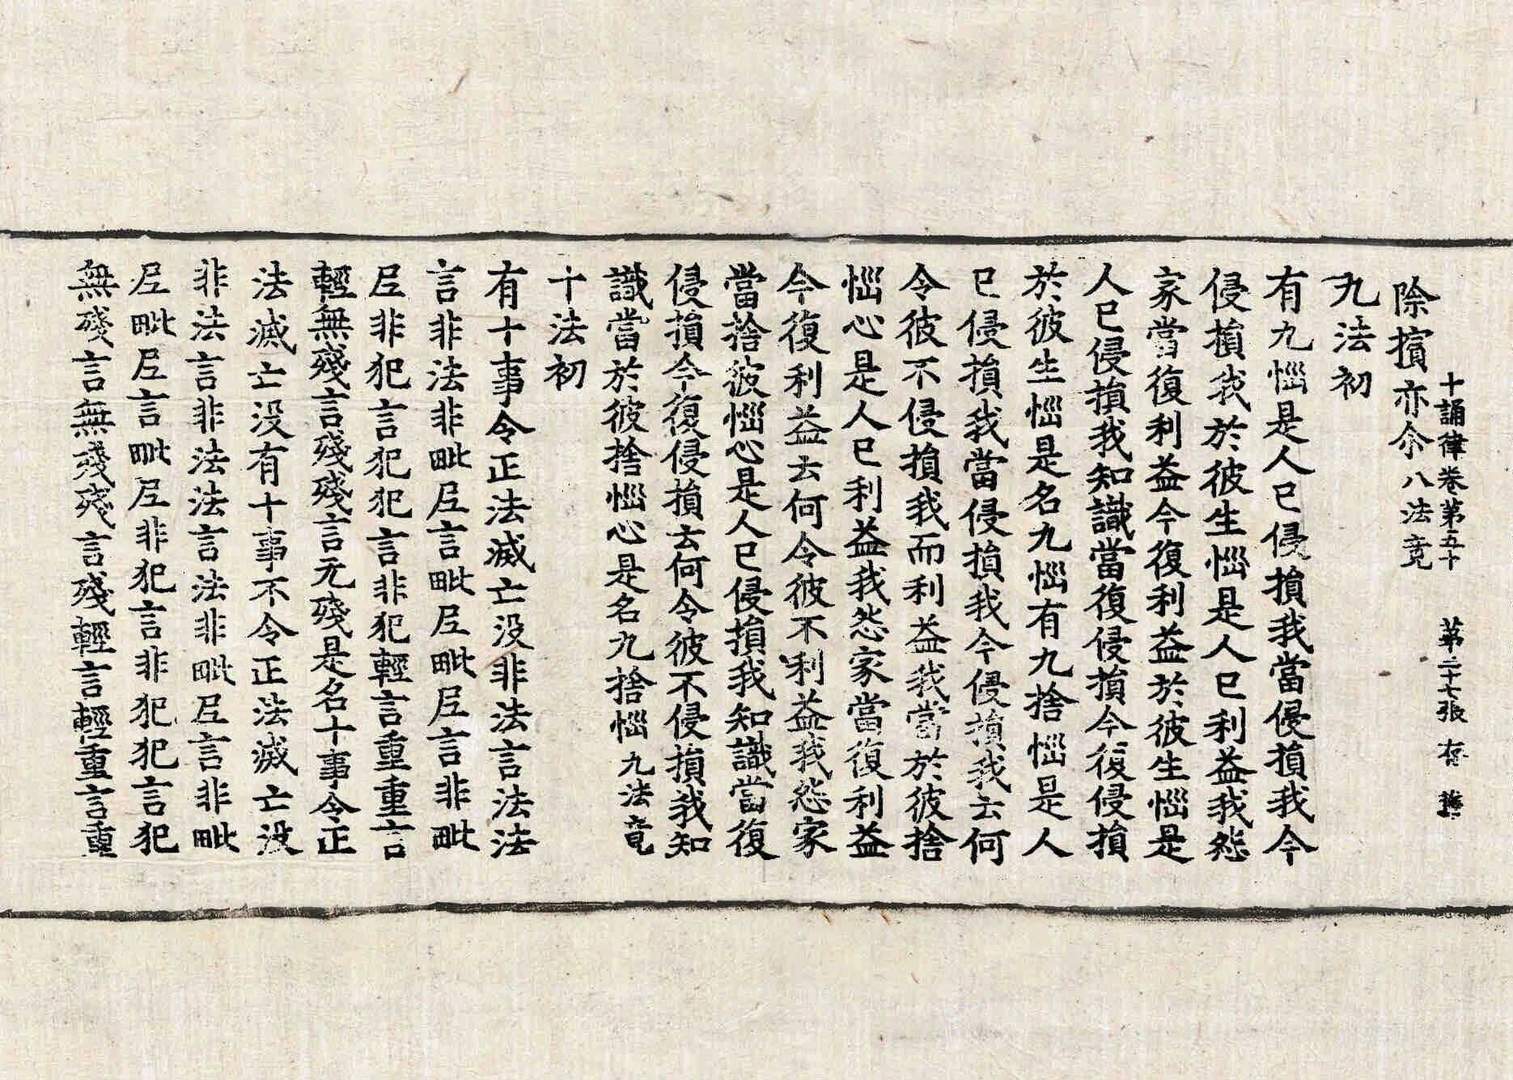 十誦律卷第五十　第二十七張　存
除擯亦尒八法竟
九法初
有九惱是人已侵損我當侵損我今
侵損我於彼生惱是人已利益我怨
家當復利益今復利益於彼生惱是
人已侵損我知識當復侵損今復侵損
於彼生惱是名九惱有九捨惱是人
已侵損我當侵損我今侵損我去何
令彼不侵損我而利益我當於彼捨
惱心是人已利益我怨家當復利益
今復利益去何令彼不利益我怨家
當捨彼惱心是人已侵損我知識當復
侵損今復侵損去何令彼不侵損我知
識當於彼捨惱心是名九捨惱九法竟
十法初
有十事令正法滅亡没非法言法法
言非法非毗尼言毗尼毗尼言非毗
尼非犯言犯犯言非犯輕言重重言
輕無殘言殘殘言无殘是名十事令正
法滅亡没有十事不令正法滅亡没
非法言非法法言法非毗尼言非毗
尼毗尼言毗尼非犯言非犯犯言犯
無殘言無殘殘言殘輕言輕重言重